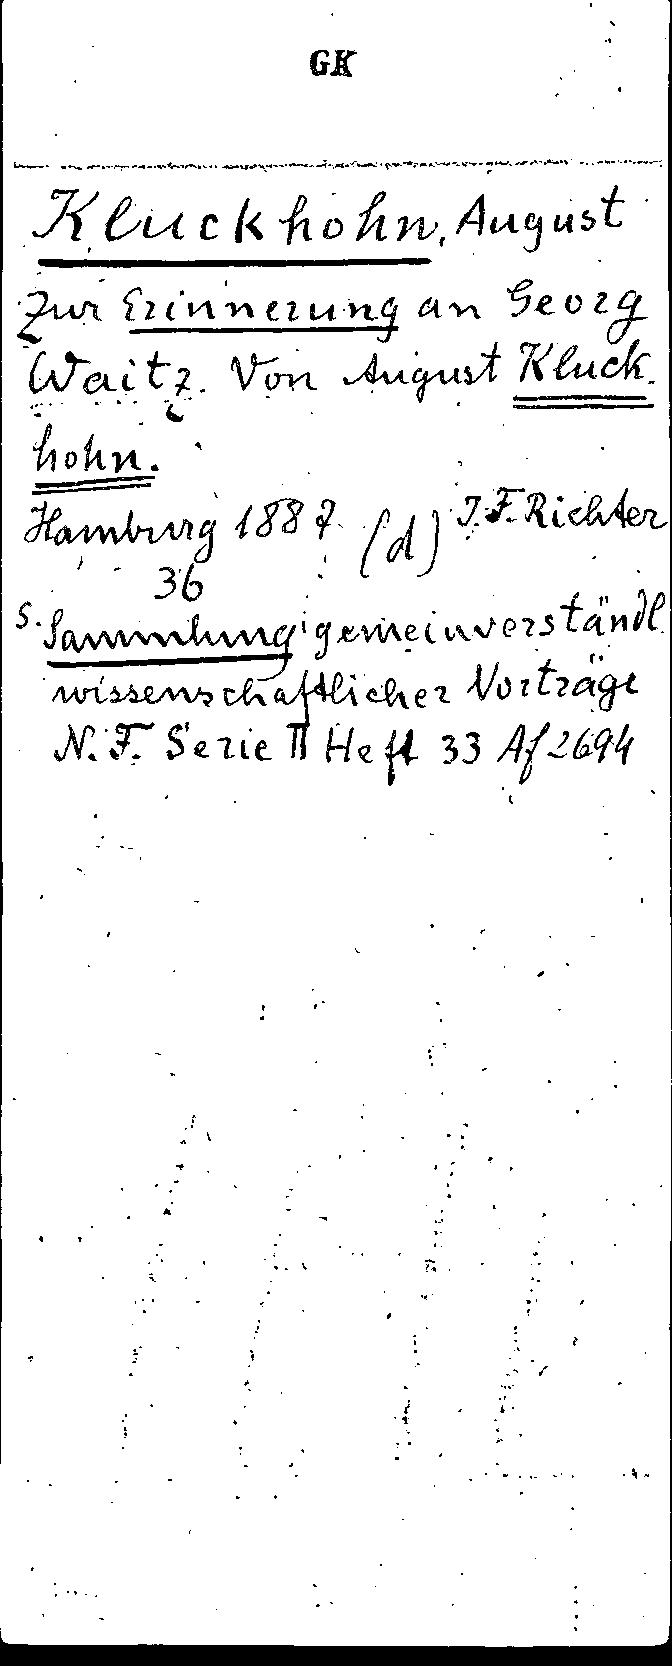 GK
Kluckhohn, August
Zur Erinnerung an Georg
Waitz. Von August Kluck-
hohn.
Hamburg 1887 (d) J.F. Richter
36
s. Sammlung gemeinverständl.
wissenschaftlicher Vorträge
N. F. Serie II Heft 33 Af 2694